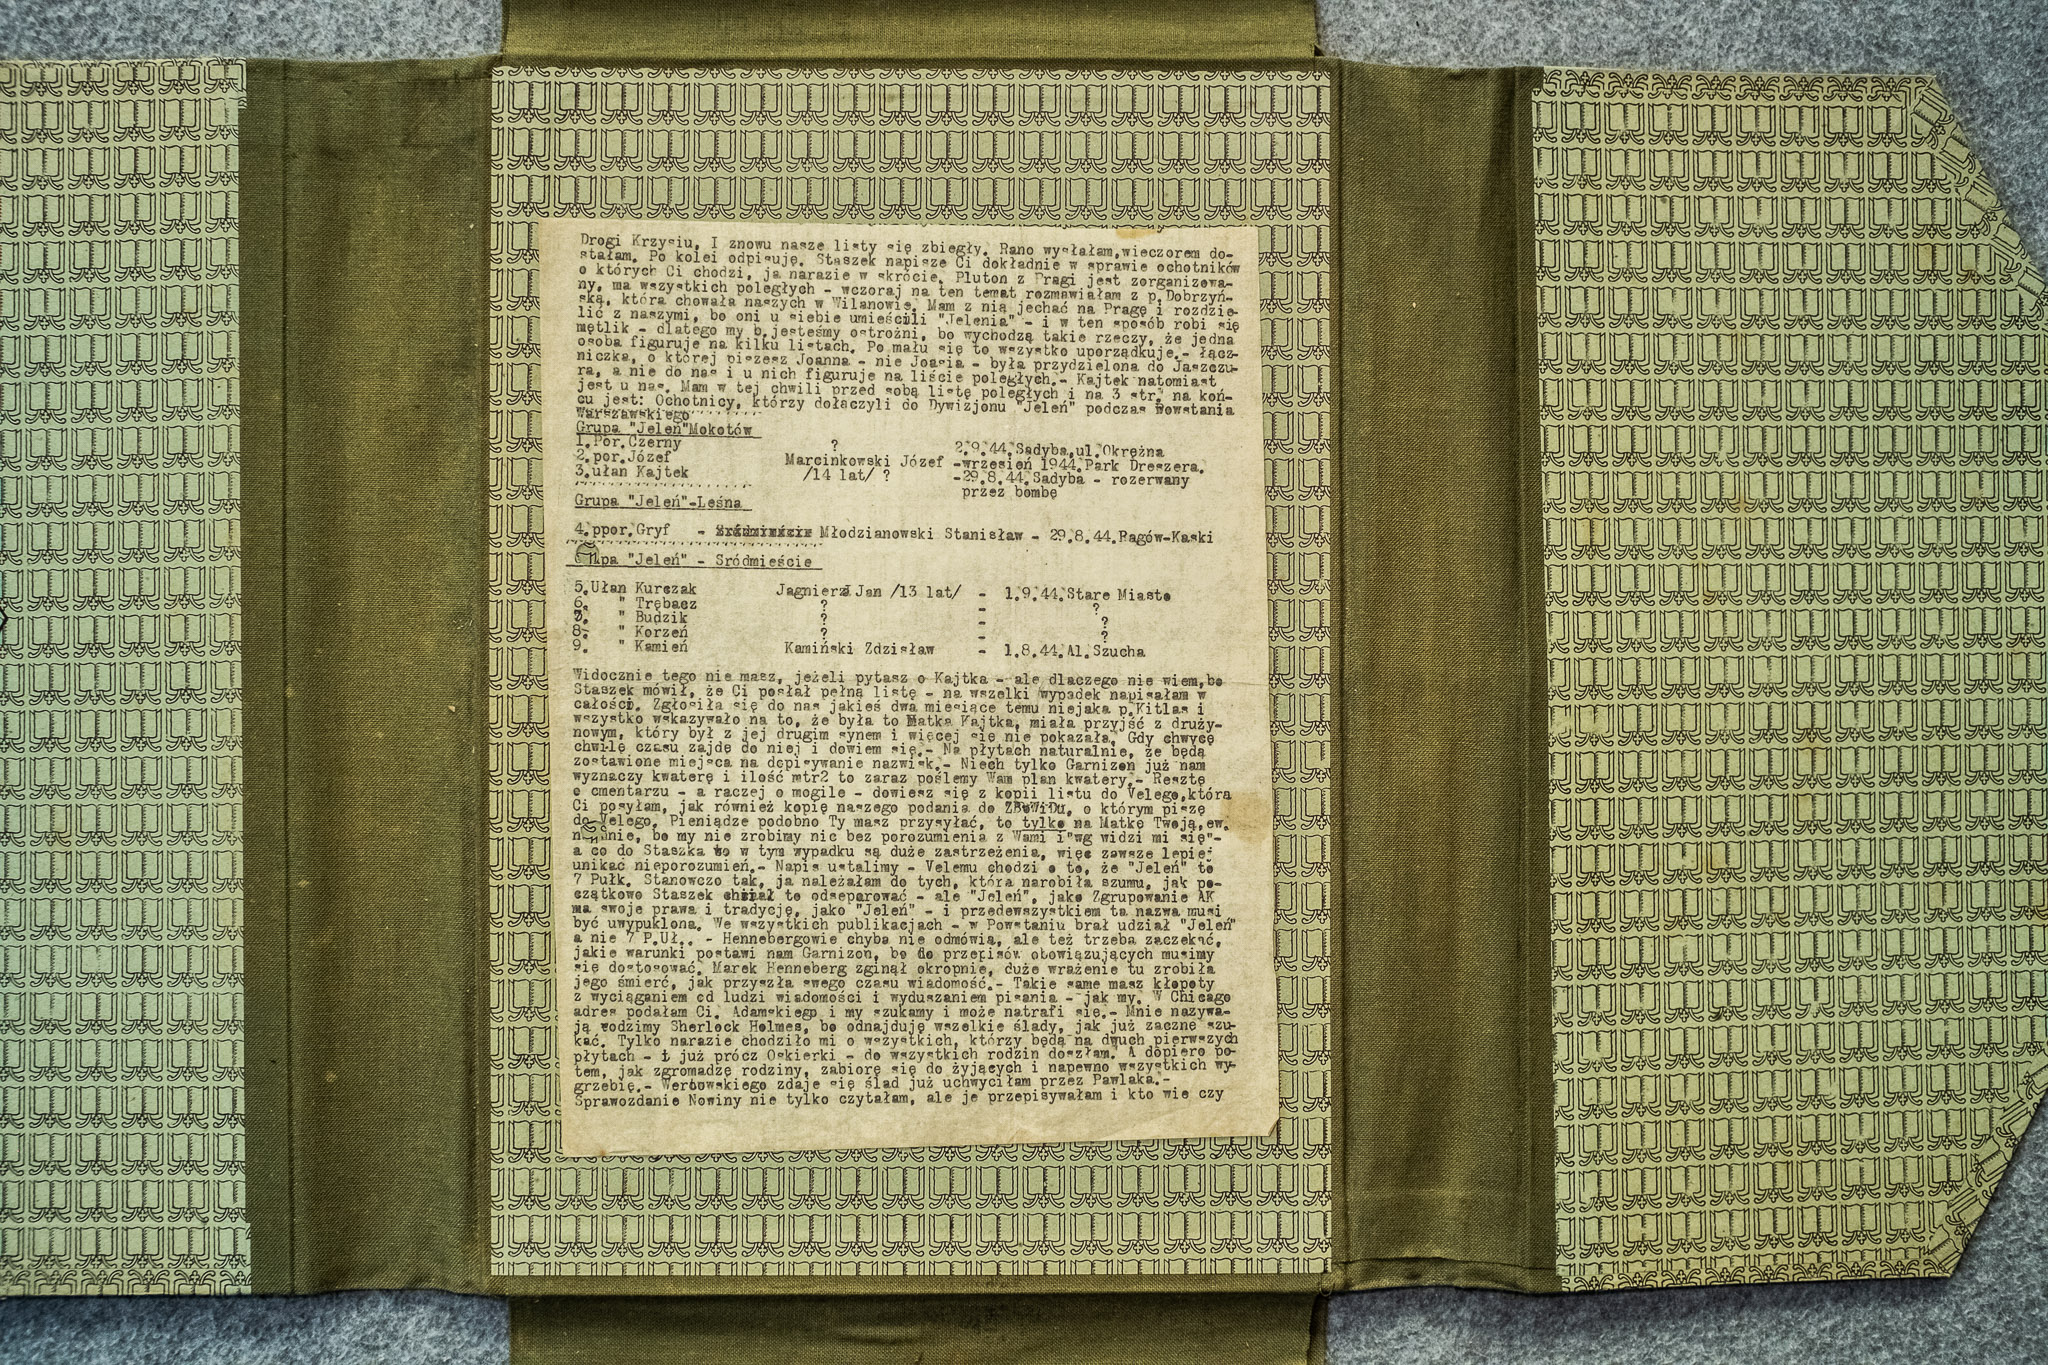 Drogi Krzysiu, I znowu nasze listy się zbiegły. Rano wysłałam,wieczorem do-
stałam. Po kolei odpisuję. Staszek napisze Ci dokładnie w sprawie ochotników
o których Ci chodzi, ja narazie w skrócie. Pluton z Pragi jest zorganizowa-
ny, ma wszystkich poległych - wczoraj na ten temat rozmawiałam z p.Dobrzyń-
ską, która chowała naszych w Wilanowie. Mam z nią jechać na Pragę i rozdzie-
lić z naszymi, bo oni u siebie umieścili "Jelenia" - i w ten sposób robi się
mętlik - dlatego my b.jesteśmy ostrożni, bo wychodzą takie rzeczy, że jedna
osoba figuruje na kilku listach. Po mału się to wszystko uporządkuje.- Łącz-
niczka, o której piszesz Joanna - nie Joasia - była przydzielona do Jaszczu-
ra, a nie do nas i u nich figuruje na liście poległych.- Kajtek natomiast
jest u nas. Mam w tej chwili przed sobą listę poległych i na 3 str. na koń-
cu jest: Ochotnicy, którzy dołaczyli do Dywizjonu "Jeleń" podczas Powstania
Warszawskiego
Grupa "Jeleń"Mokotów
1.Por.Czerny ? 2.9.44.Sadyba,ul.Okrężna
2.por.Józef Marcinkowski Józef -wrzesień 1944.Park Dreszera.
3.ułan Kajtek /14 lat/ ? -29.8.44.Sadyba - rozerwany
przez bombę
Grupa "Jeleń"-Leśna
4.ppor.Gryf - Śródmieście Młodzianowski Stanisław - 29.8.44.Pagów-Kaski
Grupa "Jeleń" - Sródmieście
5.Ułan Kurczak Jagnierz Jan /13 lat/ - 1.9.44.Stare Miasto
6. " Trębacz ? - ?
7. " Budzik ? - ?
8. " Korzeń ? - ?
9. " Kamień Kamiński Zdzisław - 1.8.44.Al.Szucha
Widocznie tego nie masz, jeżeli pytasz o Kajtka - ale dlaczego nie wiem,bo
Staszek mówił, że Ci posłał pełną listę - na wszelki wypadek napisałam w
całości. Zgłosiła się do nas jakieś dwa miesiące temu niejaka p.Kitlas i
wszystko wskazywało na to, że była to Matka Kajtka, miała przyjść z druży-
nowym, który był z jej drugim synem i więcej się nie pokazała. Gdy chwycę
chwilę czasu zajdę do niej i dowiem się.- Na płytach naturalnie, że będą
zostawione miejsca na dopisywanie nazwisk.- Niech tylko Garnizon już nam
wyznaczy kwaterę i ilość mtr2 to zaraz poślemy Wam plan kwatery.- Resztę
o cmentarzu - a raczej o mogile - dowiesz się z kopii listu do Velego,która
Ci posyłam, jak również kopię naszego podania do ZBoWiDu, o którym piszę
do Velego. Pieniądze podobno Ty masz przysyłać, to tylko na Matkę Twoją,ew.
na mnie, bo my nie zrobimy nic bez porozumienia z Wami i"wg widzi mi się"-
a co do Staszka to w tym wypadku są duże zastrzeżenia, więc zawsze lepiej
unikać nieporozumień.- Napis ustalimy - Velemu chodzi o to, że "Jeleń" to
7 Pułk. Stanowczo tak, ja należałam do tych, która narobiła szumu, jak po-
czątkowo Staszek chciał to odseparować - ale "Jeleń", jako Zgrupowanie AK
ma swoje prawa i tradycję, jako "Jeleń" - i przedewszystkiem ta nazwa musi
być uwypuklona. We wszystkich publikacjach - w Powstaniu brał udział "Jeleń"
a nie 7 P.Uł.. - Hennebergowie chyba nie odmówią, ale też trzeba zaczekać,
jakie warunki postawi nam Garnizon, bo do przepisów obowiązujących musimy
się dostosować. Marek Henneberg zginął okropnie, duże wrażenie tu zrobiła
jego śmierć, jak przyszła swego czasu wiadomość.- Takie same masz kłopoty
z wyciąganiem od ludzi wiadomości i wyduszaniem pisania - jak my. W Chicago
adres podałam Ci. Adamskiego i my szukamy i może natrafi się.- Mnie nazywa-
ją rodzimy Sherlock Holmes, bo odnajduję wszelkie ślady, jak już zacznę szu-
kać. Tylko narazie chodziło mi o wszystkich, którzy będą na dwuch pierwszych
płytach - i już prócz Oskierki - do wszystkich rodzin doszłam. A dopiero po-
tem, jak zgromadzę rodziny, zabiorę się do żyjących i napewno wszystkich wy-
grzebię.- Werbowskiego zdaje się ślad już uchwyciłam przez Pawlaka.-
Sprawozdanie Nowiny nie tylko czytałam, ale je przepisywałam i kto wie czy